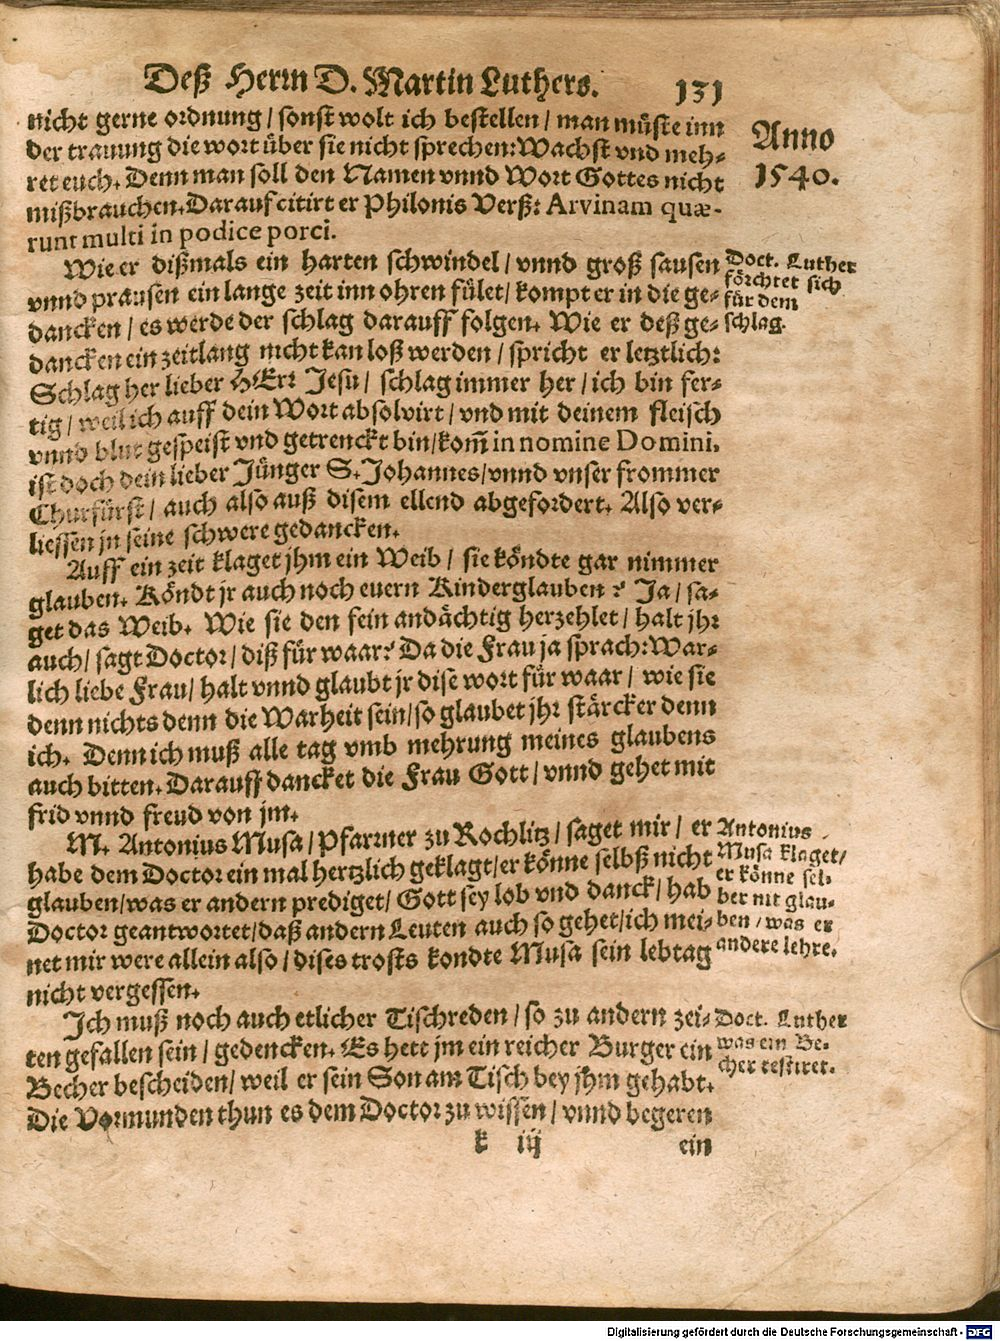 Deß Herrn D. Martin Luthers. 131
nicht gerne ordnung / sonst wolt ich bestellen / man müste inn
der trauung die wort über sie nicht sprechen: Wachst vnd meh-
ret euch. Denn man soll den Namen vnnd Wort Gottes nicht
mißbrauchen. Darauf citirt er Philonis Verß: Arvinam quæ-
runt multi in podice porci.
Anno
1540.
Wie er dißmals ein harten schwindel / vnnd groß sausen
vnnd prausen ein lange zeit inn ohren fület / kompt er in die ge-
dancken / es werde der schlag darauff folgen. Wie er deß ge-
dancken ein zeitlang nicht kan loß werden / spricht er letztlich:
Schlag her lieber HErr Jesu / schlag immer her / ich bin fer-
tig / weil ich auff dein Wort absolvirt / vnd mit deinem fleisch
vnnd blut gespeist vnd getrenckt bin / kom̃ in nomine Domini,
ist doch dein lieber Jünger S. Johannes / vnnd vnser frommer
Churfürst / auch also auß disem ellend abgefordert. Also ver-
liessen jn seine schwere gedancken.
Doct. Luther
förchtet sich
für dem
schlag.
Auff ein zeit klaget jhm ein Weib / sie köndte gar nimmer
glauben. Köndt jr auch noch euern Kinderglauben? Ja / sa-
get das Weib. Wie sie den fein andächtig herzehlet / halt jhr
auch / sagt Doctor / diß für waar? Da die Frau ja sprach: War-
lich liebe Frau / halt vnnd glaubt jr dise wort für waar / wie sie
denn nichts denn die Warheit sein / so glaubet jhr stärcker denn
ich. Denn ich muß alle tag vmb mehrung meines glaubens
auch bitten. Darauff dancket die Frau Gott / vnnd gehet mit
frid vnnd freud von jm.
M. Antonius Musa / Pfarrner zu Rochlitz / saget mir / er
habe dem Doctor ein mal hertzlich geklagt / er könne selbß nicht
glauben / was er andern prediget / Gott sey lob vnd danck / hab
Doctor geantwortet / daß andern Leuten auch so gehet / ich mei-
net mir were allein also / dises trosts kondte Musa sein lebtag
nicht vergessen.
Antonius
Musa klaget /
er könne sel-
ber nit glau-
ben / was er
andere lehre.
Ich muß noch auch etlicher Tischreden / so zu andern zei-
ten gefallen sein / gedencken. Es hett jm ein reicher Burger ein
Becher bescheiden / weil er sein Son am Tisch bey jhm gehabt.
Die Vormunden thun es dem Doctor zu wissen / vnnd begeren
Doct. Luther
was ein Be-
cher testiret.
k iij ein
Digitalisierung gefördert durch die Deutsche Forschungsgemeinschaft - DFG